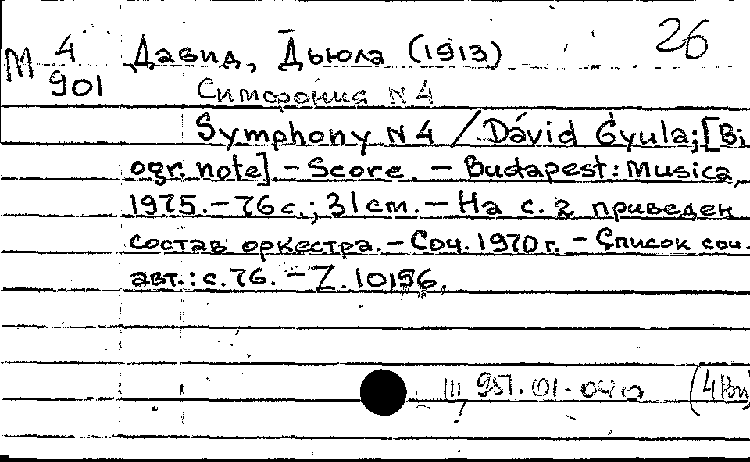 26
М 4 Давид, Дьюла (1913)
901 Симфония N 4
Symphony N 4 / Dávid Gyula; [Bi
ogr. note]. - Score. - Budapest: Musica,
1975. - 76 с.; 31 cm. - На с. 2 приведен
состав оркестра. - Соч. 1970 г. - Список соч.
авт.: с. 76. - Z. 10196.